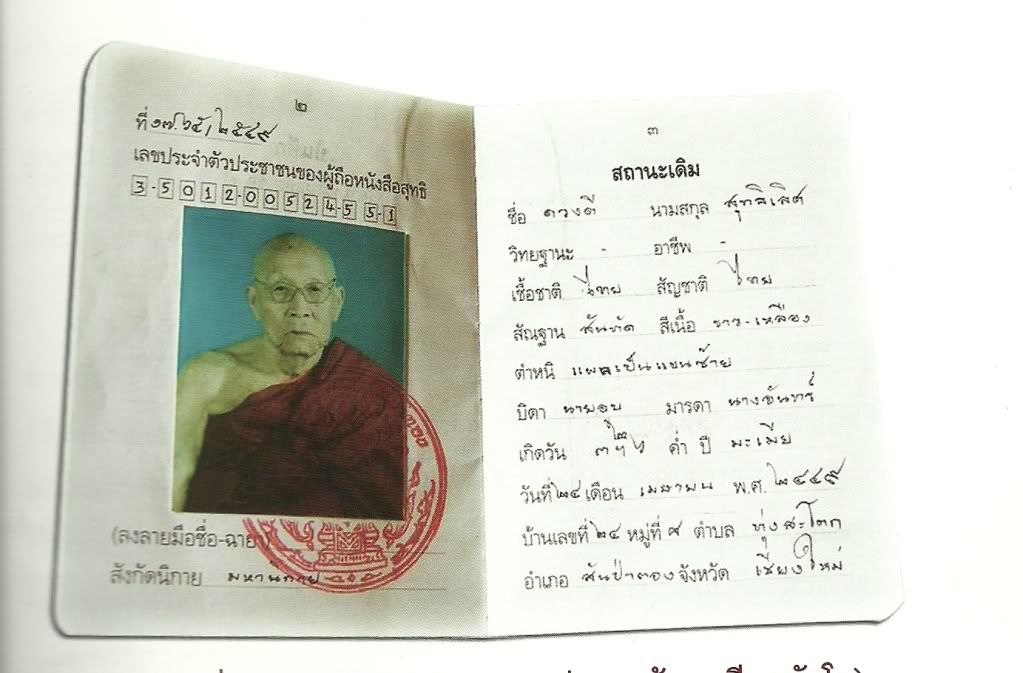 ๒
ที่ ๑๗๖๕/๒๕๔๙
เลขประจำตัวประชาชนของผู้ถือหนังสือสุทธิ
3-5012-00524-55-1
(ลงลายมือชื่อ-ฉายา)
สังกัดนิกาย มหานิกาย
๓
สถานะเดิม
ชื่อ ดวงดี นามสกุล
วิทยฐานะ - อาชีพ -
เชื้อชาติ ไทย สัญชาติ ไทย
สัณฐาน สันทัด สีเนื้อ ขาว-เหลือง
ตำหนิ แผลเป็นแขนซ้าย
บิดา นายอูบ มารดา นางจันทร์
เกิดวัน ค่ำ ปี มะเมีย
วันที่ ๒๔ เดือน เมษายน พ.ศ. ๒๔๔๙
บ้านเลขที่ ๒๔ หมู่ที่ ๘ ตำบล ทุ่งสะโตก
อำเภอ สันป่าตอง จังหวัด เชียงใหม่